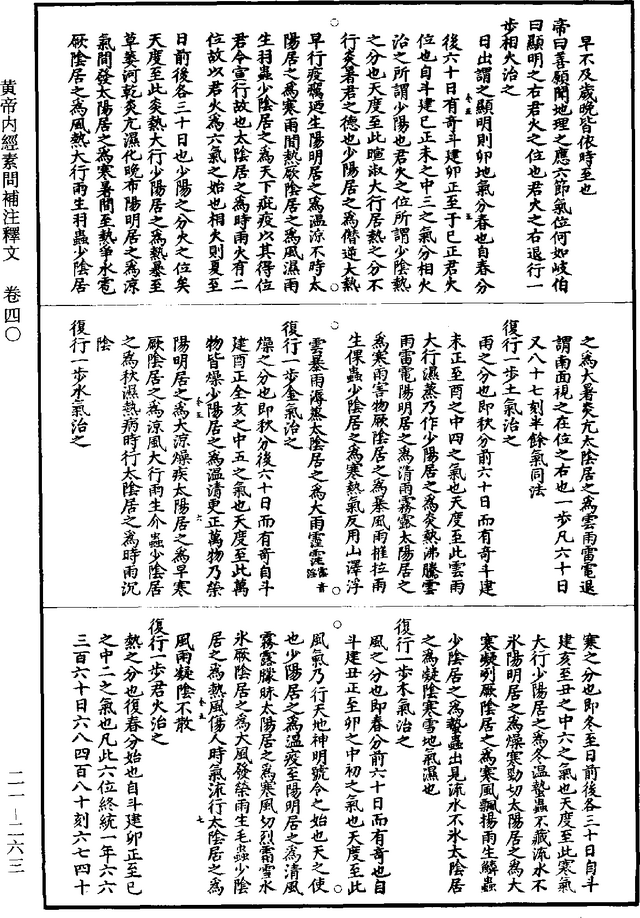 黃帝内經素問補注釋文　卷四〇
二一－二六三
早不及歲晚皆依時至也
帝曰善願聞地理之應六節氣位何如岐伯
曰顯明之右君火之位也君火之右退行一
步相火治之
日出謂之顯明則卯地氣分春也自春分
後六十日有奇斗建卯正至于巳正君火
位也自斗建巳正未之中三之氣分相火
治之所謂少陽也君火之位所謂少陰熱
之分也天度至此暄淑大行居熱之分不
行炎暑君之德也少陽居之爲僭逆大熱
早行疫癘迺生陽明居之爲溫涼不時太
陽居之爲寒雨間熱厥陰居之爲風濕雨
生羽蟲少陰居之爲天下疵疫以其得位
君令宣行故也太陰居之爲時雨火有二
位故以君火爲六氣之始也相火則夏至
日前後各三十日也少陽之分火之位矣
天度至此炎熱大行少陽居之爲熱暴至
草萎河乾炎亢濕化晚布陽明居之爲涼
氣間發太陽居之爲寒暑間至熱爭冰雹
厥陰居之爲風熱大行雨生羽蟲少陰居
之爲大暑炎亢太陰居之爲雲雨雷電退
謂南面視之在位之右也一步凡六十日
又八十七刻半餘氣同法
復行一步土氣治之
雨之分也即秋分前六十日而有奇斗建
未正至酉之中四之氣也天度至此雲雨
大行濕蒸乃作少陽居之爲炎熱沸騰雲
雨雷電陽明居之爲清雨霧露太陽居之
爲寒雨害物厥陰居之爲暴風雨摧拉雨
生倮蟲少陰居之爲寒熱氣反用山澤浮
雲暴雨溽蒸太陰居之爲大雨霪
復行一步金氣治之
燥之分也即秋分後六十日而有奇自斗
建酉正全亥之中五之氣也天度至此萬
物皆燥少陽居之爲溫清更正萬物乃榮
陽明居之爲大涼燥疾太陽居之爲早寒
厥陰居之爲涼風大行雨生介蟲少陰居
之爲秋濕熱病時行太陰居之爲時雨沉
陰
復行一步水氣治之
寒之分也即冬至日前後各三十日自斗
建亥至丑之中六之氣也天度至此寒氣
大行少陽居之爲冬溫蟄蟲不藏流水不
氷陽明居之爲燥寒勁切太陽居之爲大
寒凝冽厥陰居之爲寒風飄揚雨生鱗蟲
少陰居之爲蟄蟲出見流水不氷太陰居
之爲凝陰寒雪地氣濕也
復行一步木氣治之
風之分也即春分前六十日而有奇也自
斗建丑正至卯之中初之氣也天度至此
風氣乃行天地神明號令之始也天之使
也少陽居之爲溫疫至陽明居之爲清風
霧露朦昧太陽居之爲寒風切烈霜雪水
氷厥陰居之爲大風發榮雨生毛蟲少陰
居之爲熱風傷人時氣流行太陰居之爲
風雨凝陰不散
復行一步君火治之
熱之分也復春分始也自斗建卯正至巳
之中二之氣也凡此六位終統一年六六
三百六十日六八四百八十刻六七四十